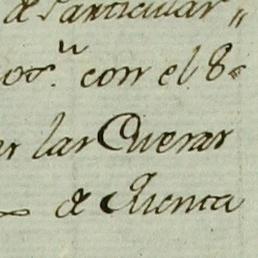 de Particular„
os.ⁿ con el 8
er las Cuevas
de Cuenca